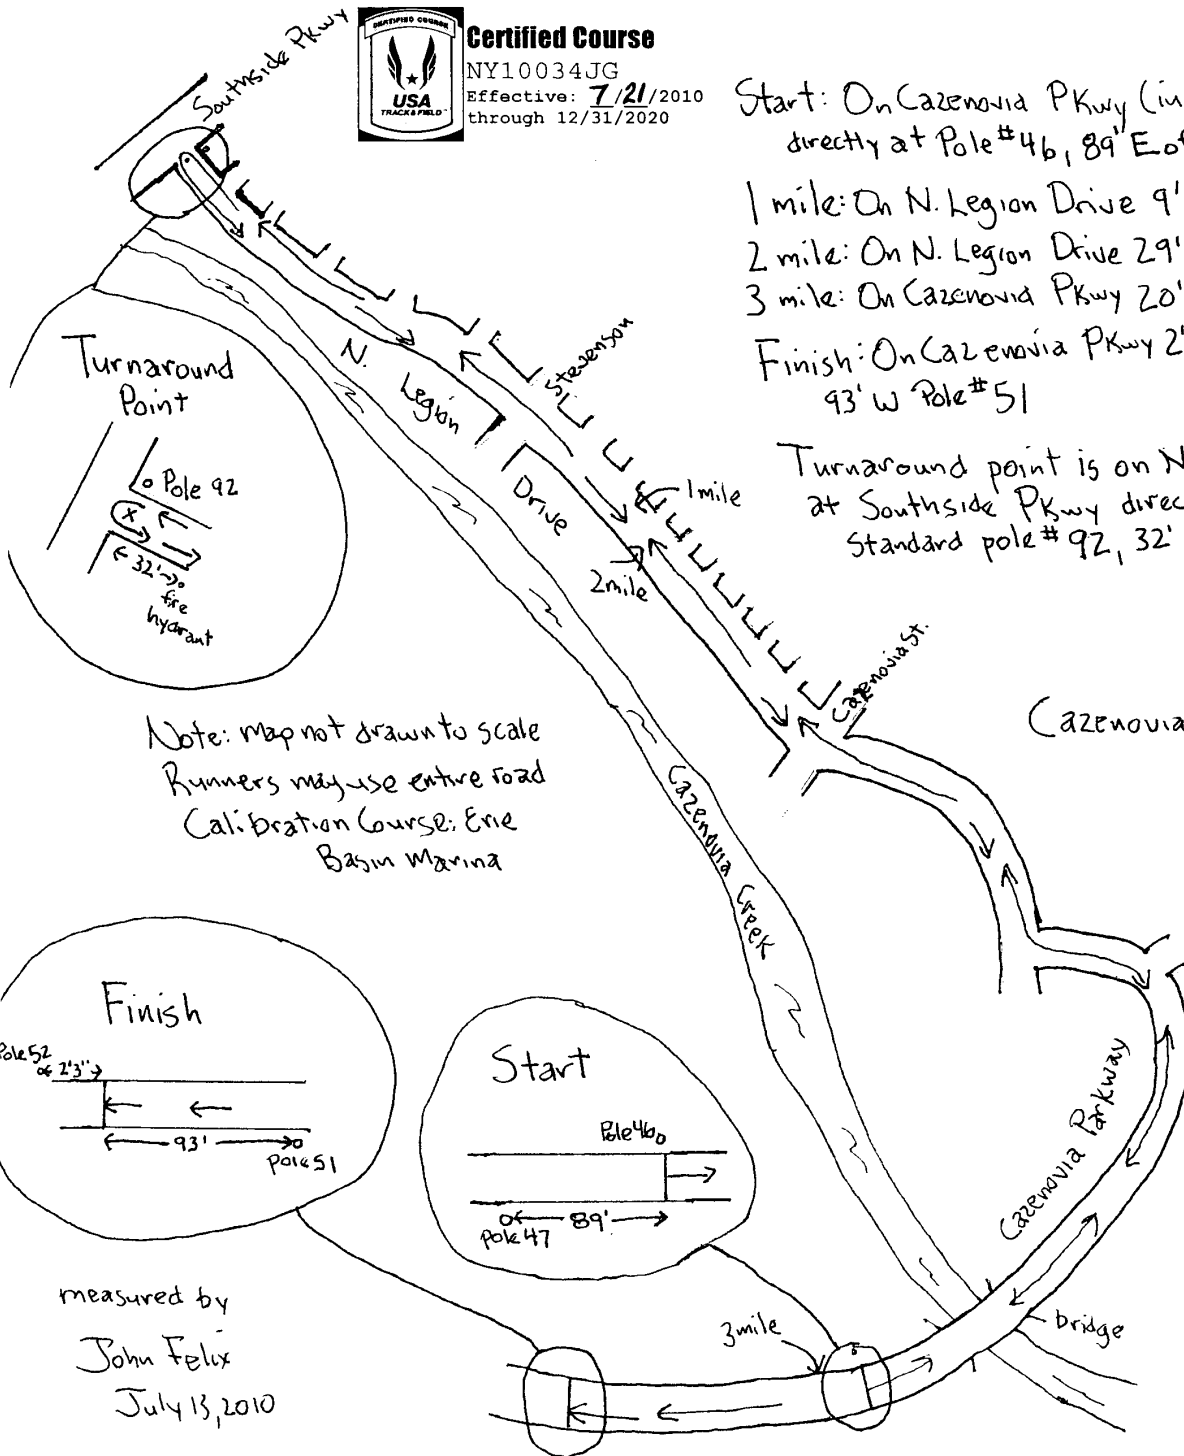 Southside Pkwy
CERTIFIED COURSE
USA
TRACK & FIELD
Certified Course
NY10034JG
Effective: 7/21/2010
through 12/31/2020
Start: On Cazenovia Pkwy (in
directly at Pole #46, 89' E of
1 mile: On N. Legion Drive 9'
2 mile: On N. Legion Drive 29'
3 mile: On Cazenovia Pkwy 20'
Finish: On Cazenovia Pkwy 2'
93' W Pole #51
Turnaround point is on N
at Southside Pkwy direc
Standard pole #92, 32'
Turnaround
Point
Pole 92
x
32'
fire
hydrant
N. Legion Drive
Stevenson
1 mile
2 mile
Cazenovia St.
Cazenovia
Note: map not drawn to scale
Runners may use entire road
Calibration Course: Erie
Basin Marina
Cazenovia Creek
Finish
Pole 52
2'3"
93'
Pole 51
Start
Pole 46
89'
Pole 47
Cazenovia Parkway
bridge
3 mile
measured by
John Felix
July 13, 2010